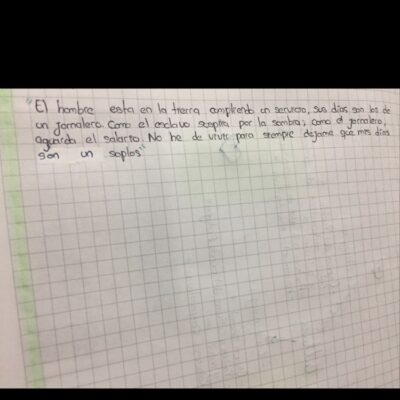 "El hombre esta en la tierra cumpliendo un servicio, sus dias son los de
un jornalero. Como el esclavo suspira por la sombra; como el jornalero,
aguarda el salario. No he de vivir para siempre dejame que mis dias
son un soplos"